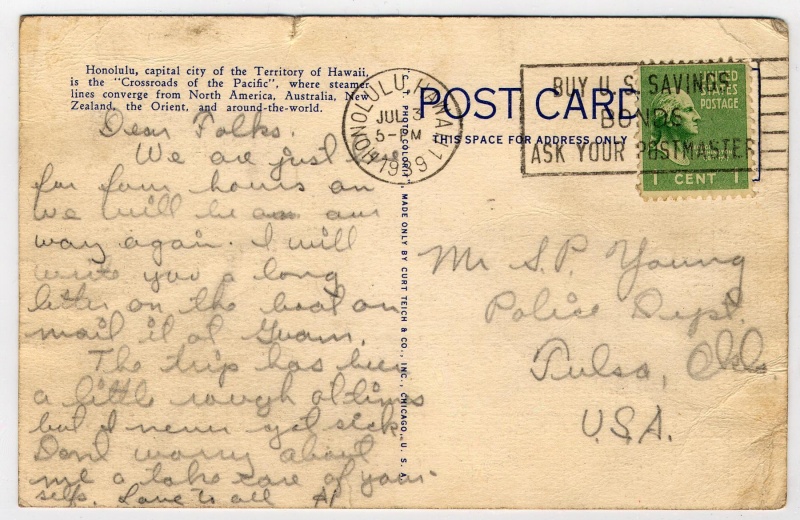 Honolulu, capital city of the Territory of Hawaii,
is the "Crossroads of the Pacific", where steamer
lines converge from North America, Australia, New
Zealand, the Orient, and around-the-world.
Dear Folks.
We are just
for four hours an
we will be on our
way again. I will
write you a long
letter on the boat an
mail it at Guam.
The trip has been
a little rough at times
but I never got sick.
Dont worry about
me a take care of your-
self. Love to all Al
"PHOTO COLORIT" MADE ONLY BY CURT TEICH & CO., INC., CHICAGO, U. S. A.
HONOLULU, HAWAII
JUL 3
5-PM
1939
POST CARD
THIS SPACE FOR ADDRESS ONLY
BUY U.S. SAVINGS
BONDS
ASK YOUR POSTMASTER
UNITED
STATES
POSTAGE
1 CENT 1
Mr S.P. Young
Police Dept.
Tulsa, Okla.
U.S.A.